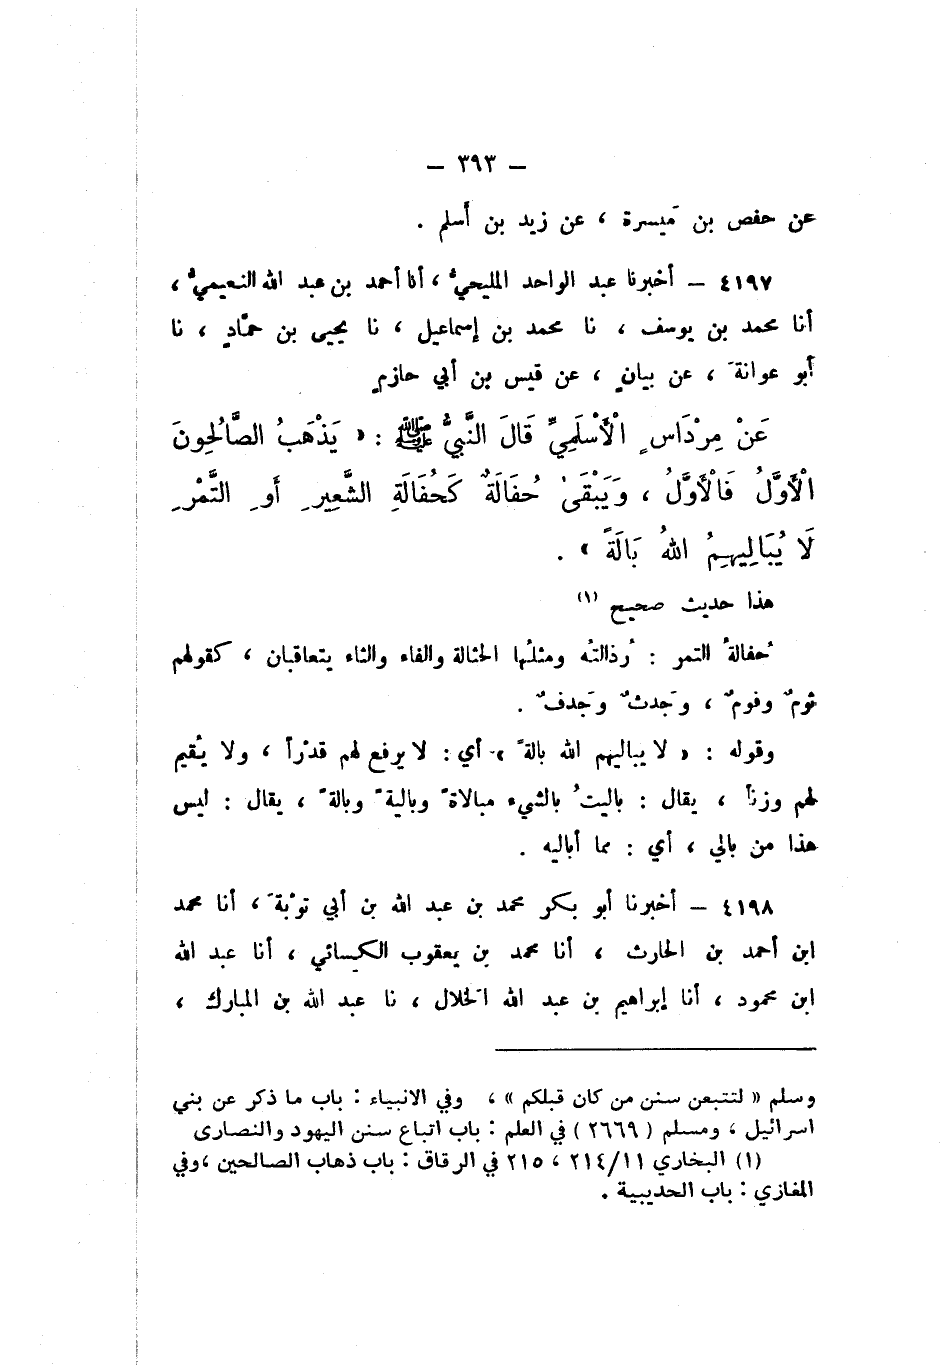 – ٣٩٣ –
عن حفص بن مَيسرة ، عن زيد بن أَسلم .
٤١٩٧ – أخبرنا عبد الواحد المليحيُّ ، أنا أحمد بن عبد الله النعيميُّ ،
أنا محمد بن يوسف ، نا محمد بن إسماعيل ، نا يحيى بن حمّادٍ ، نا
أبو عوانةَ ، عن بيانٍ ، عن قيس بن أبي حازمٍ
عَنْ مِرْدَاسٍ الْأَسْلَمِيِّ قَالَ النَّبِيُّ ﷺ : « يَذْهَبُ الصَّالِحُونَ
الْأَوَّلُ فَالْأَوَّلُ ، وَيَبْقَىٰ حُفَالَةٌ كَحُفَالَةِ الشَّعِيرِ أَوِ التَّمْرِ
لَا يُبَالِيهِمُ اللهُ بَالَةً » .
هذا حديث صحيح (١)
حُفالةُ التمر : رُذالتهُ ومثلُها الحثالة والفاء والثاء يتعاقبان ، كقولهم
ثومٌ وفومٌ ، وجَدثٌ وجَدفٌ .
وقوله : « لا يباليهم الله بالةً » أي : لا يرفع لهم قدْراً ، ولا يُقيم
لهم وزناً ، يقال : باليتُ بالشيء مبالاةً وباليةً وبالةً ، يقال : ليس
هذا من بالي ، أي : مما أباليه .
٤١٩٨ – أخبرنا أبو بكر محمد بن عبد الله بن أبي توْبةَ ، أنا محمد
ابن أحمد بن الحارث ، أنا محمد بن يعقوب الكسائي ، أنا عبد الله
ابن محمود ، أنا إبراهيم بن عبد الله الخَلال ، نا عبد الله بن المبارك ،
وسلم « لتتبعن سنن من كان قبلكم » ، وفي الانبياء : باب ما ذكر عن بني
اسرائيل ، ومسلم ( ٢٦٦٩ ) في العلم : باب اتباع سنن اليهود والنصارى
(١) البخاري ٢١٤/١١ ، ٢١٥ في الرقاق : باب ذهاب الصالحين ، وفي
المغازي : باب الحديبية .